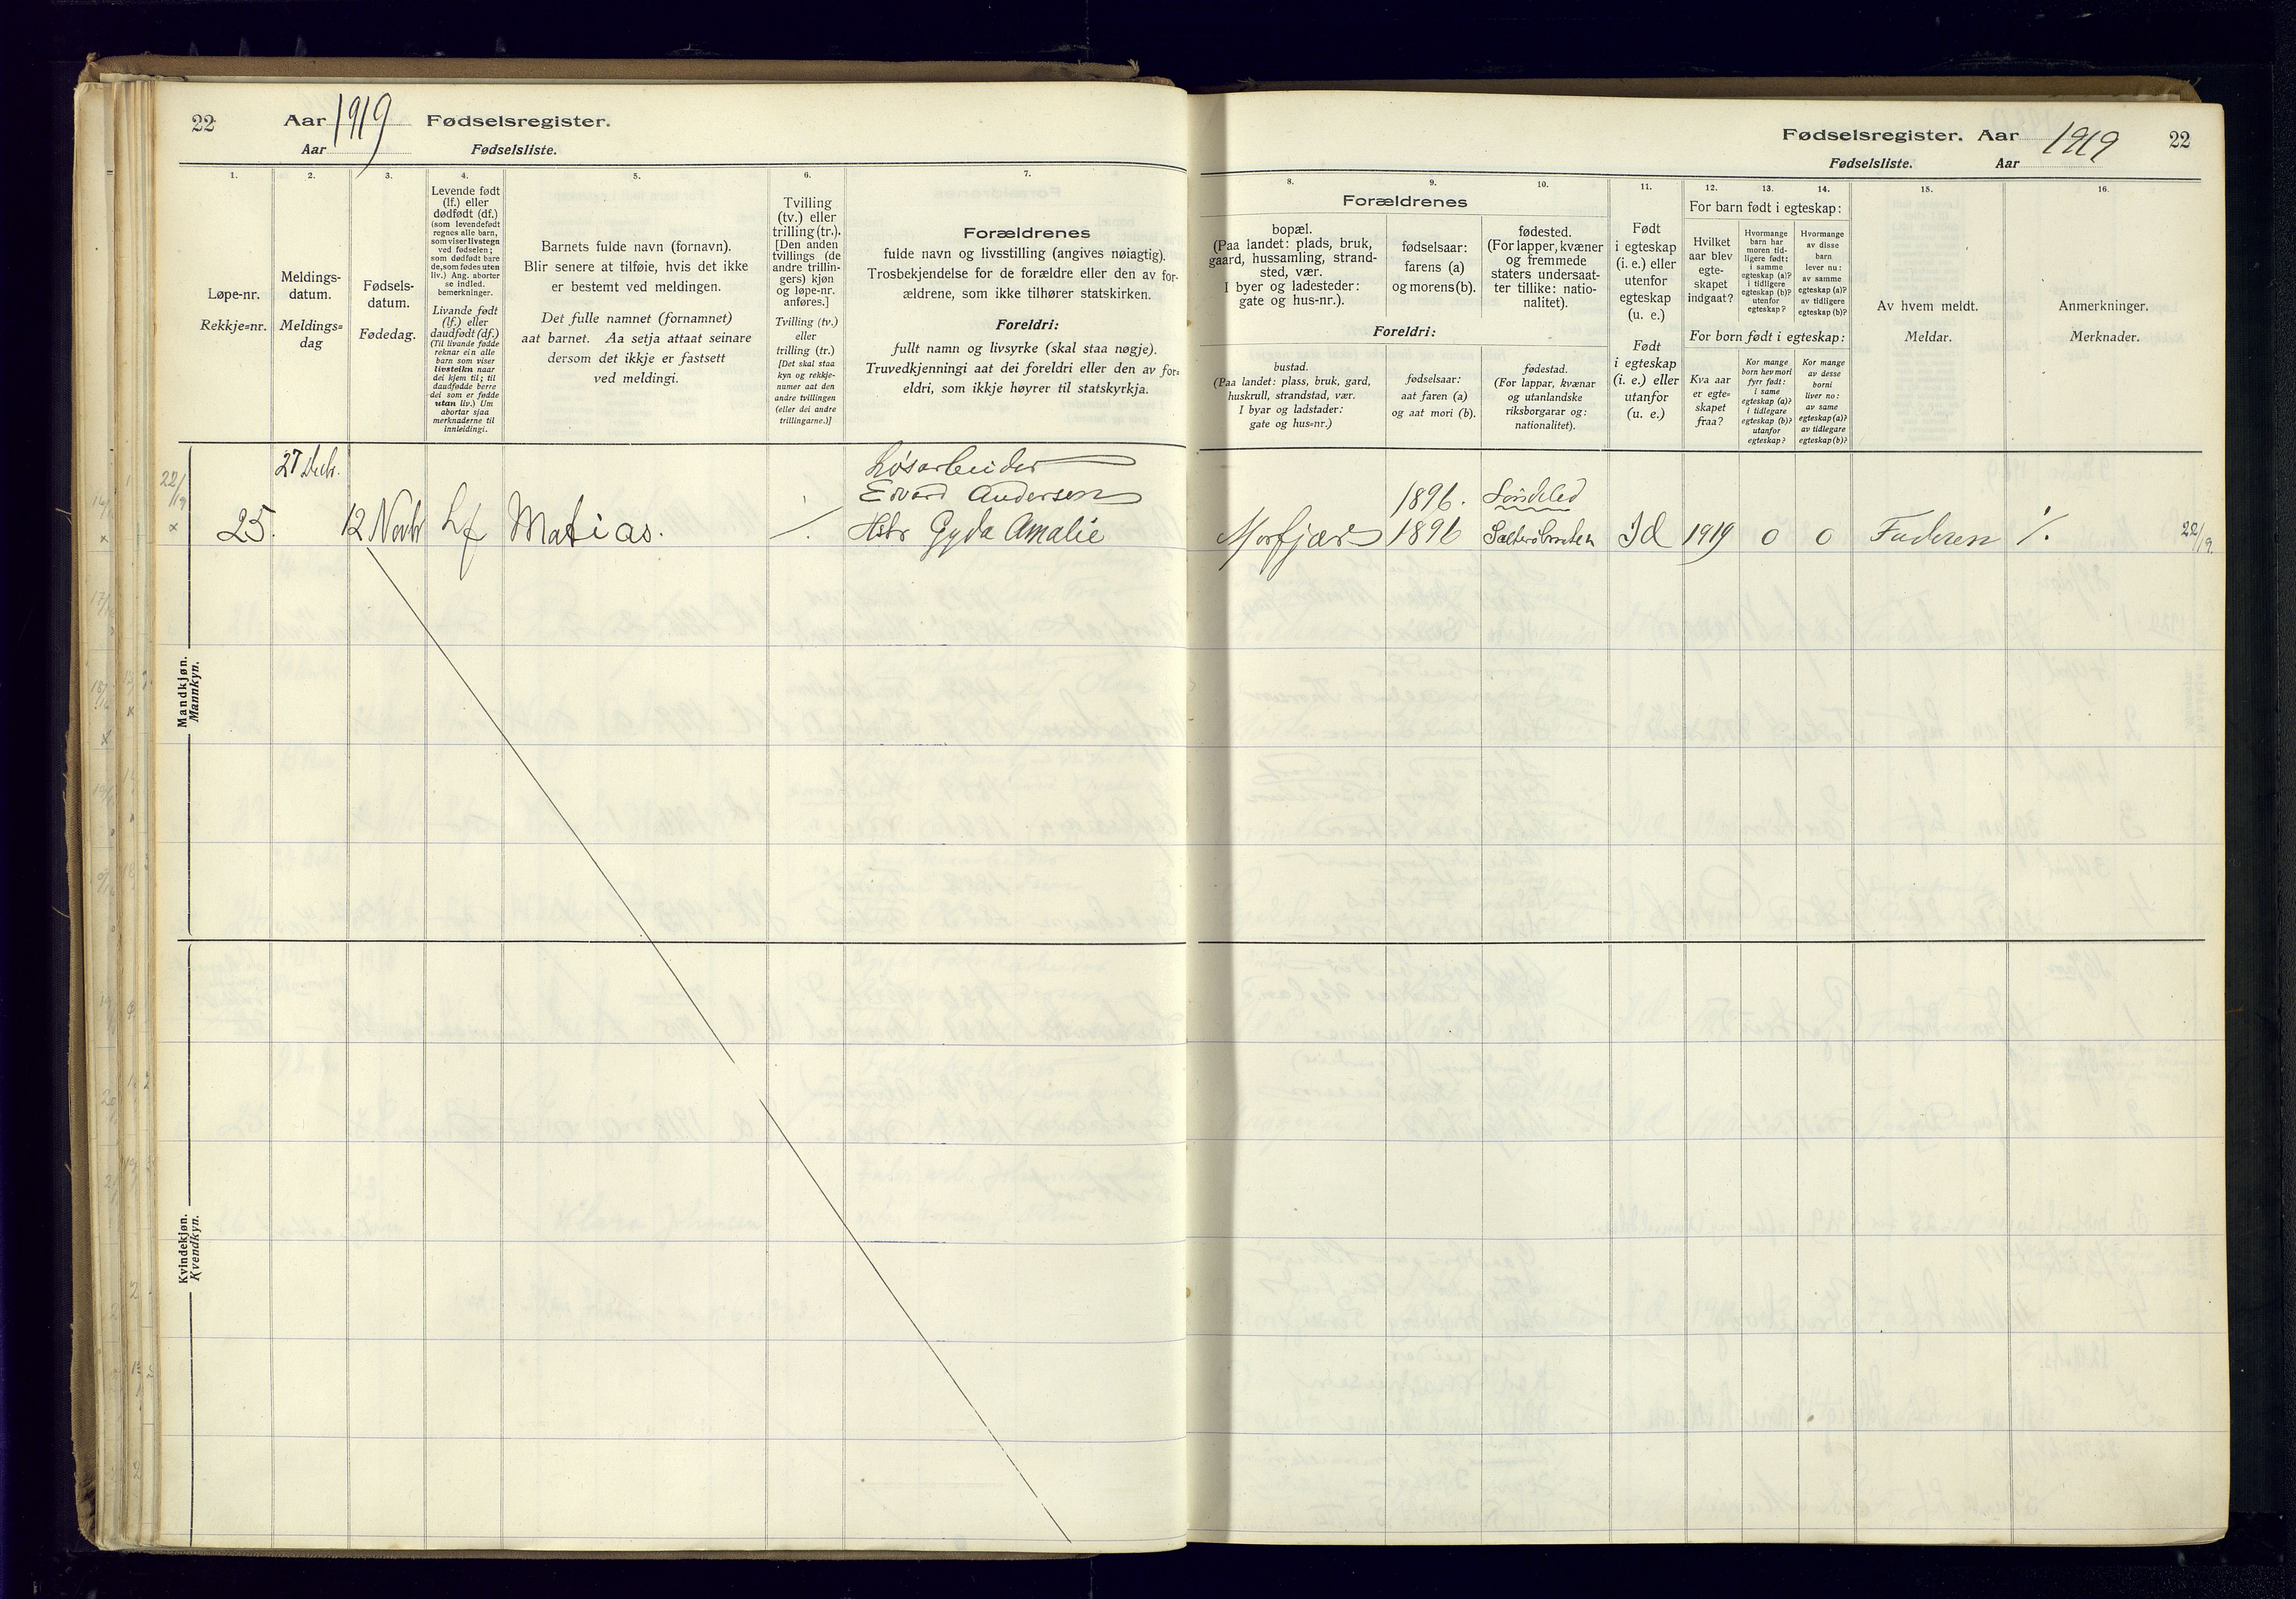 22
Aar 1919 Fødselsregister.
Aar Fødselsliste.
1.
Løpe-nr.
Rekkje=nr.
2.
Meldings-
datum.
Meldings=
dag
3.
Fødsels-
datum.
Fødedag.
4.
Levende født
(lf.) eller
dødfødt (df.)
(som levendefødt
regnes alle barn,
som viser livstegn
ved fødselen;
som dødfødt bare
de, som fødes uten
liv.) Ang. aborter
se indled.
bemerkninger.
Livande født
(lf.) eller
daudfødt (df.)
(Til livande fødde
reknar ein alle
barn som viser
livsteikn naar
dei kjem til; til
daudfødde berre
dei som er fødde
utan liv.) Um
abortar sjaa
merknaderne til
innleidingi.
5.
Barnets fulde navn (fornavn).
Blir senere at tilføie, hvis det ikke
er bestemt ved meldingen.
Det fulle namnet (fornamnet)
aat barnet. Aa setja attaat seinare
dersom det ikkje er fastsett
ved meldingi.
6.
Tvilling
(tv.) eller
trilling (tr.).
[Den anden
tvillings (de
andre trillin-
gers) kjøn
og løpe-nr.
anføres.]
Tvilling (tv.)
eller
trilling (tr.)
[Det skal staa
kyn og rekkje-
numer aat den
andre tvillingen
(eller dei andre
trillingarne.)]
7.
Forældrenes
fulde navn og livsstilling (angives nøiagtig).
Trosbekjendelse for de forældre eller den av for-
ældrene, som ikke tilhører statskirken.
Foreldri:
fullt namn og livsyrke (skal staa nøgje).
Truvedkjenningi aat dei foreldri eller den av for=
eldri, som ikkje høyrer til statskyrkja.
Mandkjøn.
Mannkyn.
22/19
×
25.
27 Decbr.
12 Novbr
Lf
Matias.
Løsarbeider
Edvard Andersen
Hstr Gyda Amalie
Kvindekjøn.
Kvendkyn.
Fødselsregister. Aar 1919
22
Fødselsliste. Aar
8.
Forældrenes
bopæl.
(Paa landet: plads, bruk,
gaard, hussamling, strand-
sted, vær.
I byer og ladesteder:
gate og hus-nr.).
Foreldri:
bustad.
(Paa landet: plass, bruk, gard,
huskrull, strandstad, vær.
I byar og ladstader:
gate og hus=nr.)
9.
fødselsaar:
farens (a)
og morens (b).
fødselsaar:
aat faren (a)
og aat mori (b).
10.
fødested.
(For lapper, kvæner
og fremmede
staters undersaat-
ter tillike: natio-
nalitet).
fødestad.
(For lappar, kvænar
og utanlandske
riksborgarar og:
nationalitet).
11.
Født
i egteskap
(i. e.) eller
utenfor
egteskap
(u. e.)
Født
i egteskap
(i. e.) eller
utanfor
(u. e.)
12.
For barn født i egteskap:
Hvilket
aar blev
egte-
skapet
indgaat?
For born født i egteskap:
Kva aar
er egte=
skapet
fraa?
13.
Hvormange
barn har
moren tid-
ligere født:
i samme
egteskap (a)?
i tidligere
egteskap (b)?
utenfor
egteskap?
Kor mange
born hev mori
fyrr født:
i same
egteskap (a)?
i tidlegare
egteskap (b)?
utanfor
egteskap?
14.
Hvormange
av disse
barn
lever nu:
av samme
egteskap (a)?
av tidligere
egteskap (b)?
Kor mange
av desse
borni
liver no:
av same
egteskap (a)?
av tidlegare
egteskap (b)?
15.
Av hvem meldt.
Meldar.
16.
Anmerkninger.
Merknader.
1896. Söndeled
Morfjær 1896 Id 1919 0 0 Faderen
22/19.